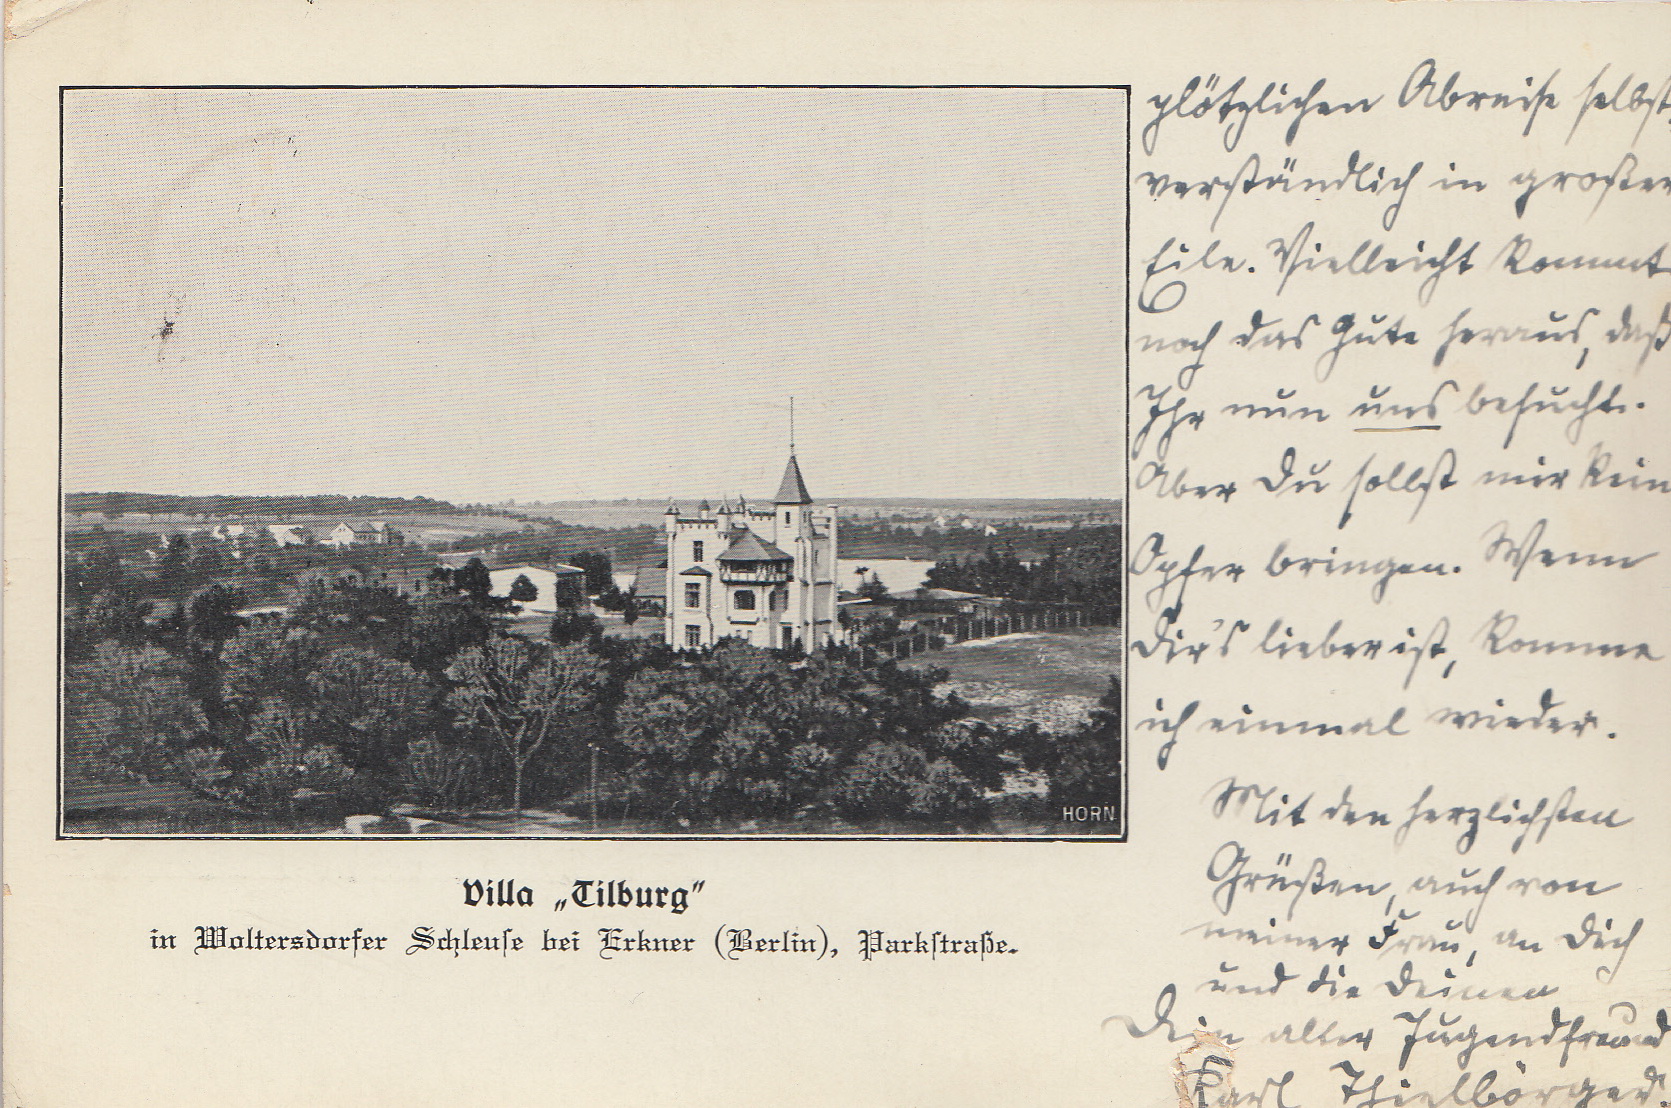 plötzlichen Abreise selbst,
verständlich in großer
Eile. Vielleicht kommt
noch das Gute heraus, daß
Ihr nun uns besucht.
Aber Du sollst mir kein
Opfer bringen. Wenn
Dir's lieber ist, komme
ich einmal wieder.
Mit den herzlichsten
Grüßen, auch von
meiner Frau, an Dich
und die Deinen
Dein alter Jugendfreund
Karl Thielbörger.
HORN
Villa „Tilburg"
in Woltersdorfer Schleuse bei Erkner (Berlin), Parkstraße.